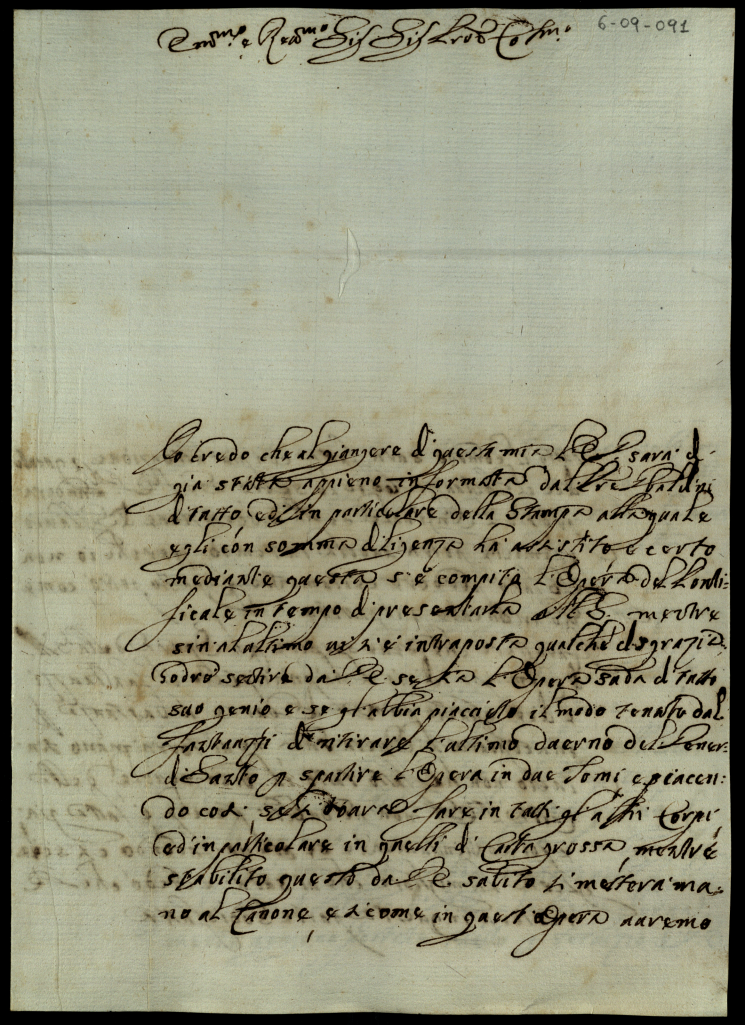 6-09-091
Em.mo e Rev.mo Sig Sig Pro Col.mo
Io credo che al giungere di questa mia V.E. sarà di
già stata appieno informata dal Pre Ubaldini
di tutto ed in particolare della Stampa alla quale
egli con somma diligenza ha assistito e certo
mediante questa s'è compita l'Opera del Ponti:
ficale in tempo di presentarla mentre
sin alultimo vi s'è intraposta qualche disgrazia.
Godrò sentire da V.E. se l'Opera sarà di tutto
suo genio e se gl'abbia piacciuto il modo tenuto dal
di ritirare l'ultimo duerno del Vener:
di Santo p spartire l'Opera in due Tomi e piacen:
do così si dovarà fare in tutti gl'altri Corpi
ed in particolare in quelli di Carta grossa mentre
stabilito questo da V.E. subito si metterà ma:
no al Canone e sicome in quest'Opera auremo